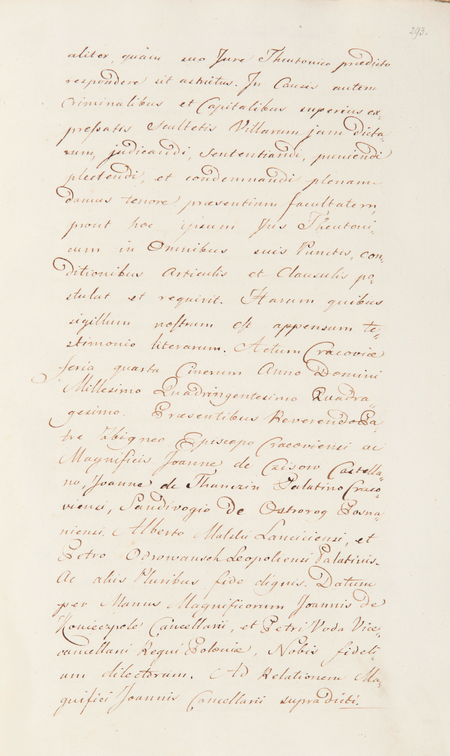 293.
aliter, quam suo Jure Theutonico prædicto
respondere sit astrictus. In Causis autem
Criminalibus et Capitalibus superius ex-
pressatis Scultetis Villarum jam dicta-
rum, judicandi, sententiandi, puniendi
plectendi, et condemnandi plenam
damus tenore præsentium facultatem,
prout hoc ipsum Jus Theutoni-
cum in Omnibus suis Punctis, con-
ditionibus Articulis et Clausulis po-
stulat et requirit. Harum quibus
sigillum nostrum est appensum te-
stimonio literarum. Actum Cracoviæ
feria quarta Cinerum Anno Domini
Millesimo Quadringentesimo Quadra-
gesimo. Præsentibus Reverendo Pa-
tre Zbigneo Episcopo Cracoviensi ac
Magnificis Joanne de Czisow Castella-
no, Joanne de Thanczin Palatino Craco-
viensi, Sandivogio de Ostrorog Posna-
niensi. Alberto Malski Lanciciensi, et
Petro Odrowansch Leopoliensi Palatinis.
Ac aliis Pluribus fide dignis. Datum
per Manus Magnificorum Joannis de
Konieczpole Cancellarii, et Petri Voda Vice-
cancellarii Regni Poloniæ, Nobis fideli-
um dilectorum. Ad Relationem Ma-
gnifici Joannis Cancellarii supradicti.